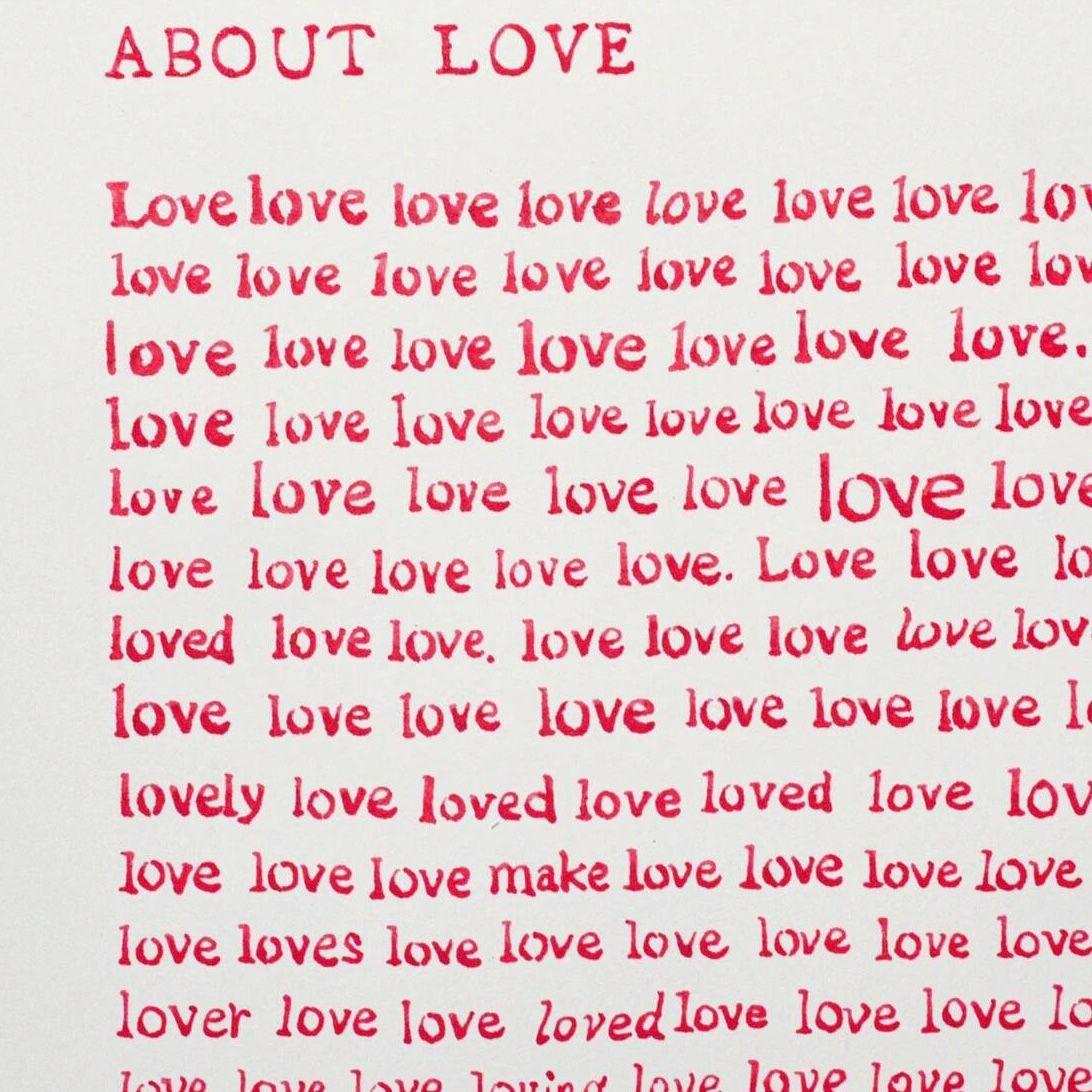 ABOUT LOVE
Love love love love love love love lov
love love love love love love love lov
love love love love love love love.
love love love love love love love love
love love love love love love love
love love love love love. Love love lo
loved love love. love love love love lov
love love love love love love love l
lovely love loved love loved love lov
love love love make love love love love
love loves love love love love love love
lover love love loved love love love lo
love love love loving love love love love